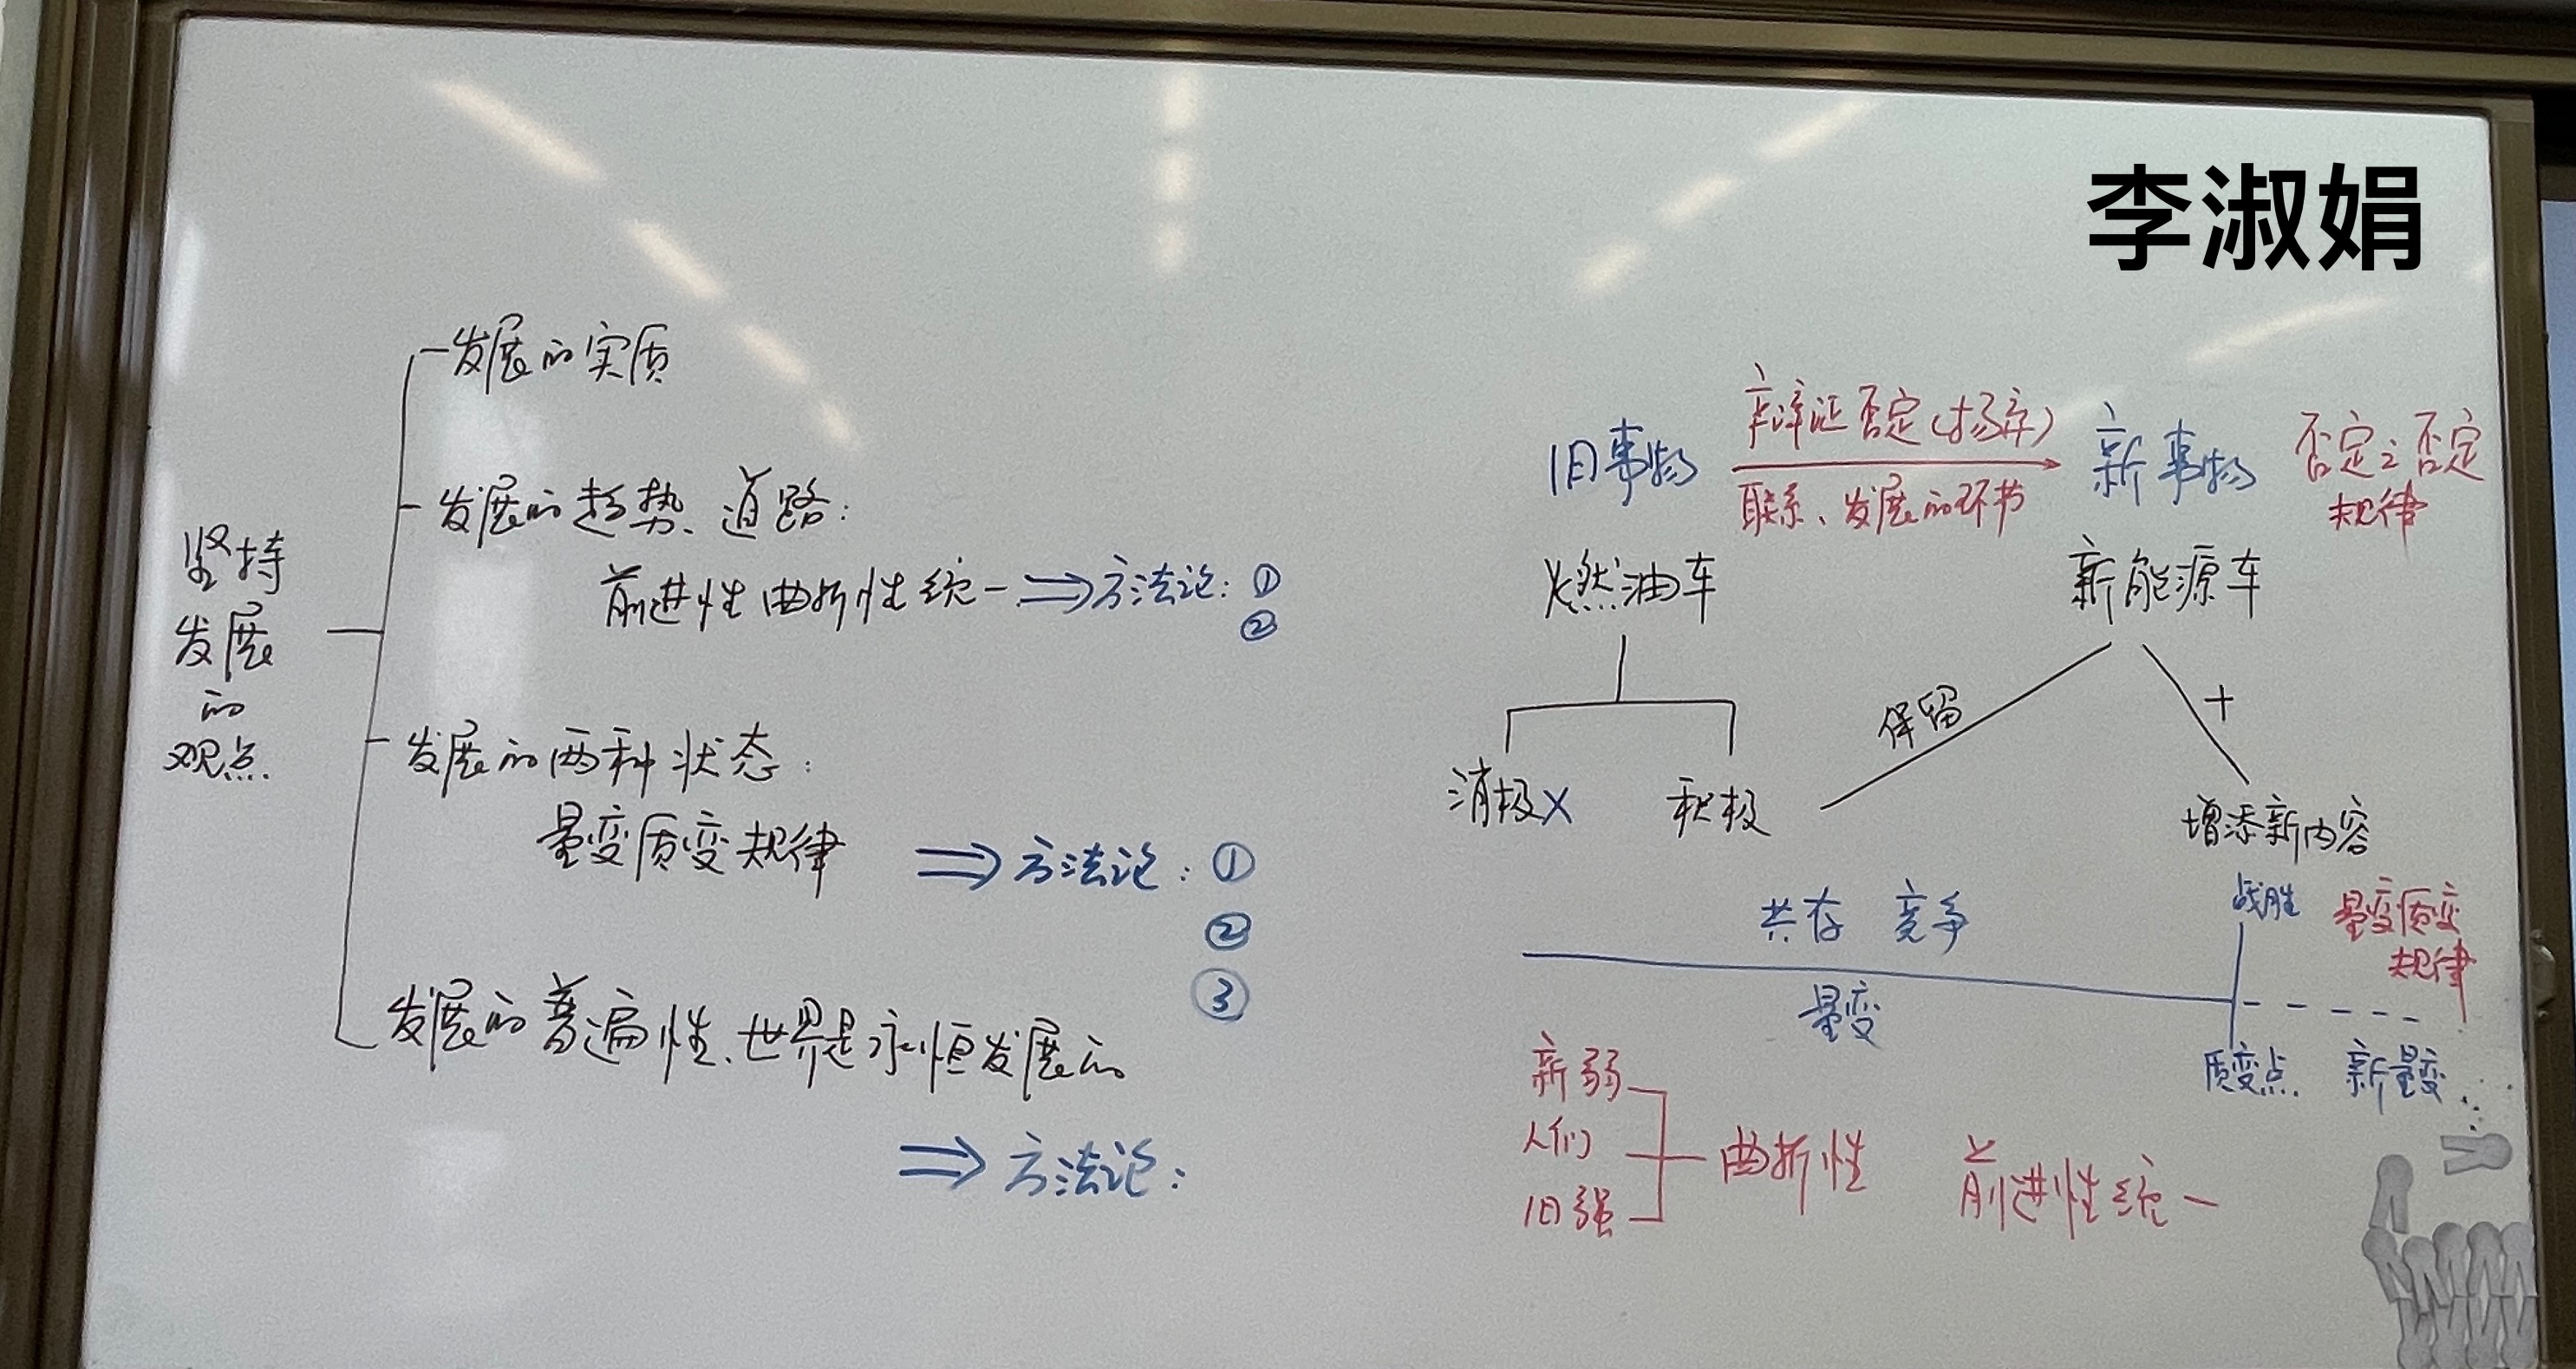 李淑娟
坚持
发展
的
观点
发展的实质
发展的趋势、道路：
前进性曲折性统一⇒方法论：①
②
发展的两种状态：
量变质变规律 ⇒方法论：①
②
③
发展的普遍性、世界是永恒发展的
⇒方法论：
旧事物 辩证否定(扬弃) 新事物 否定之否定
联系、发展的环节 规律
燃油车 新能源车
保留 +
消极× 积极 增添新内容
共存 竞争 战胜 量变质变
规律
量变 质变点 新量变
新弱
人们 曲折性 前进性统一
旧强